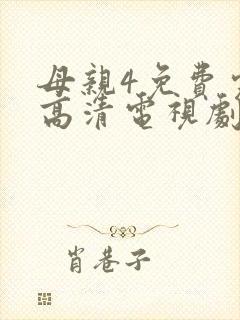 母親4免費
高清電視劇
肖巷子